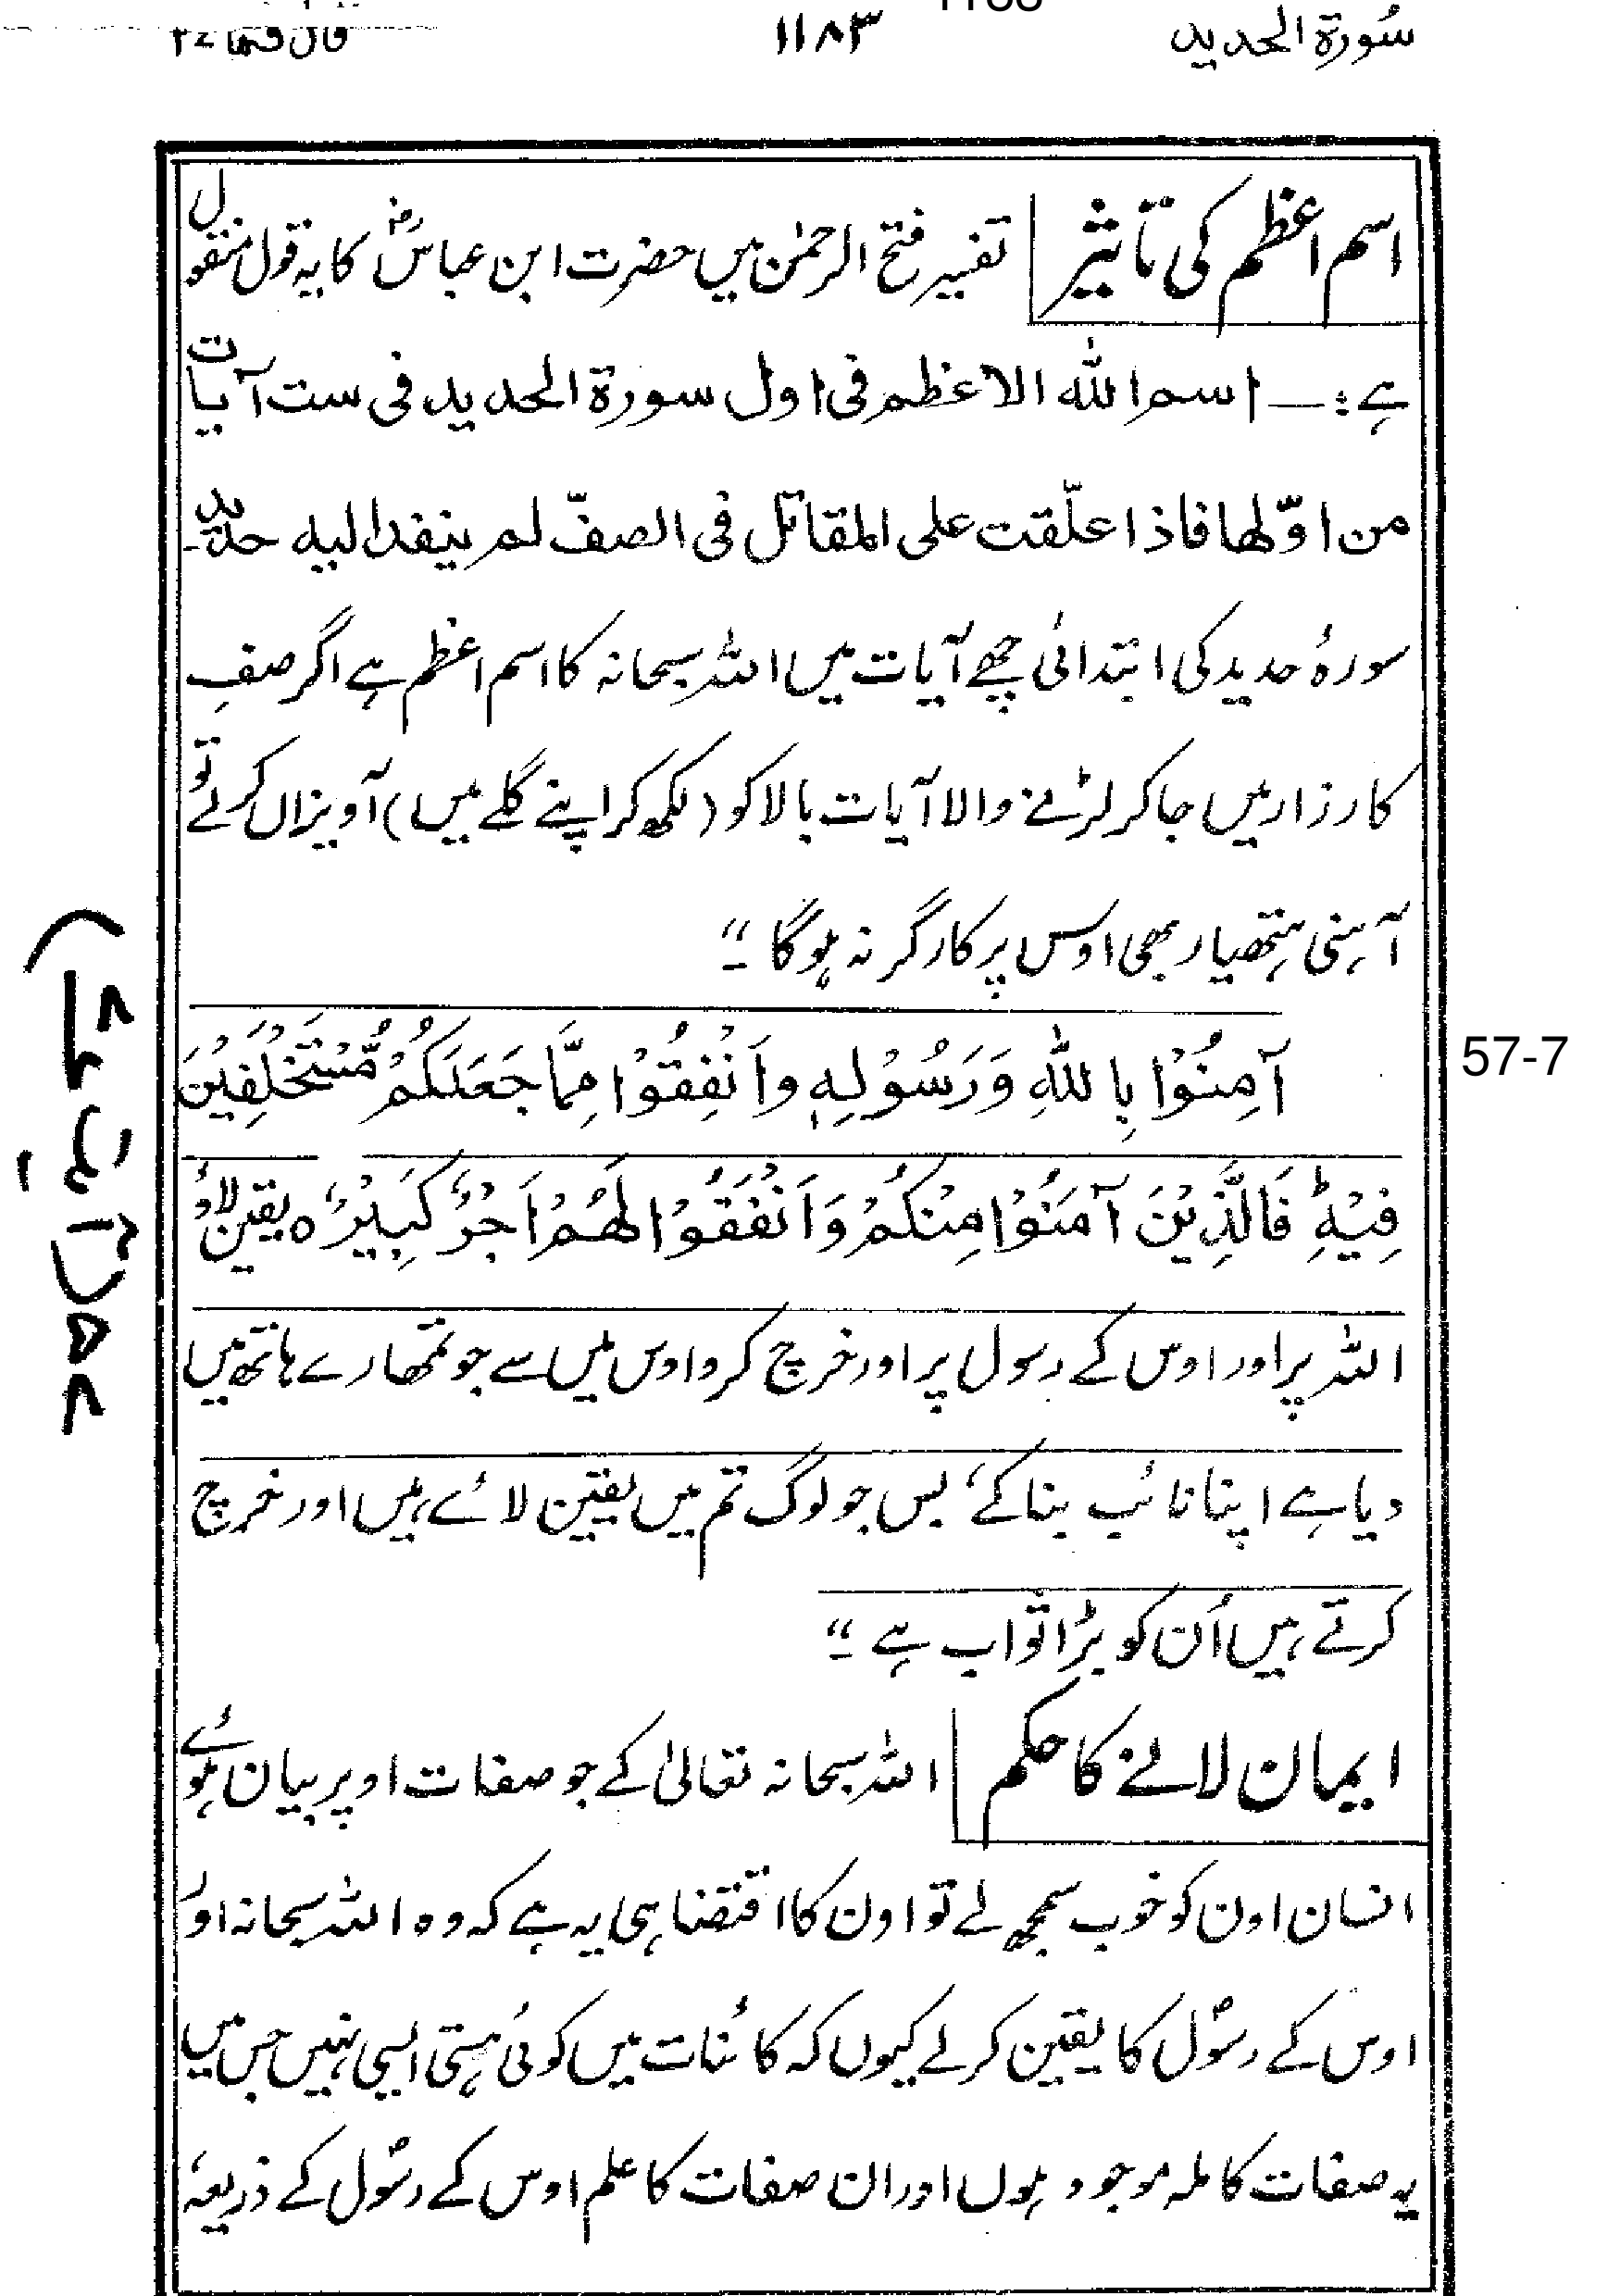 سُورۃ الحدید ۱۱۸۳ قال فما ۲۷
اسم اعظم کی تاثیر تفسیر فتح الرحمٰن میں حضرت ابن عباسؓ کا یہ قول منقول
ہے :ـــ اسم اللہ الاعظم فی اول سورۃ الحدید فی ست آیات
من اوّلھا فاذا علّقت علی المقاتل فی الصفّ لم ینفد الیہ حدید۔
سورہٗ حدید کی ابتدائی چھے آیات میں اللہ سبحانہ کا اسم اعظم ہے اگر صفِ
کارزار میں جا کر لڑنے والا آیات بالا کو (لکھ کر اپنے گلے میں) آویزاں کرلے تو
آہنی ہتھیار بھی اوس پر کارگر نہ ہوگا ۔"
آمِنُوْا بِاللّٰہِ وَرَسُوْلِہٖ وَاَنْفِقُوْا مِمَّا جَعَلَکُمْ مُّسْتَخْلَفِیْنَ
57-7
فِیْہِ ؕ فَالَّذِیْنَ آمَنُوْا مِنْکُمْ وَاَنْفَقُوْا لَھُمْ اَجْرٌ کَبِیْرٌ ہ یقین لاؤ
اللہ پر اور اوس کے رسول پر اور خرچ کرو اوس میں سے جو تمھارے ہاتھ میں
دیا ہے اپنا نائب بنا کے، بس جو لوگ تم میں یقین لائے ہیں اور خرچ
کرتے ہیں اُن کو بڑا ثواب ہے ۔"
ایمان لانے کا حکم اللہ سبحانہ تعالیٰ کے جو صفات اوپر بیان ہوئے
انسان اون کو خوب سمجھ لے تو اون کا اقتضا ہی یہ ہے کہ وہ اللہ سبحانہ اور
اوس کے رسولؐ کا یقین کرلے کیوں کہ کائنات میں کوئی ہستی ایسی نہیں جس میں
یہ صفات کاملہ موجود ہوں اور ان صفات کا علم اوس کے رسولؐ کے ذریعہٗ